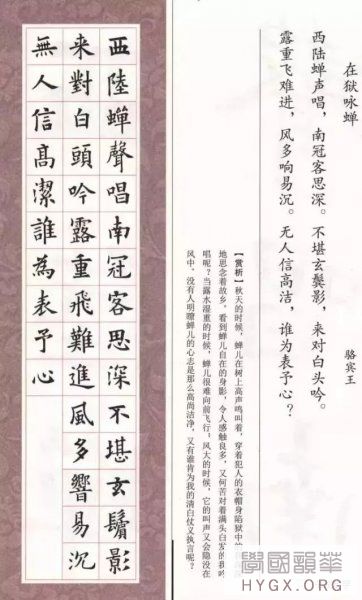 在狱咏蝉
骆宾王
西陆蝉声唱，南冠客思深。不堪玄鬓影，来对白头吟。
露重飞难进，风多响易沉。无人信高洁，谁为表予心？
【赏析】秋天的时候，蝉在树上高声鸣叫着，穿着犯人的衣帽身陷狱中的
地思念着故乡。看到蝉儿自在的身影，令人感触良多，又何苦对着满头白发的我吟
唱呢？当露水湿重的时候，蝉儿很难向前飞行。风大的时候，它的叫声又会隐没在
风中。没有人明瞭蝉儿的心志是那么高尚洁净，又有谁肯为我的清白仗义执言呢？
西陸蟬聲唱南冠客思深不堪玄鬢影
来對白頭吟露重飛難進風多響易沉
無人信髙潔誰為表予心
學國韻華
HYGX.ORG